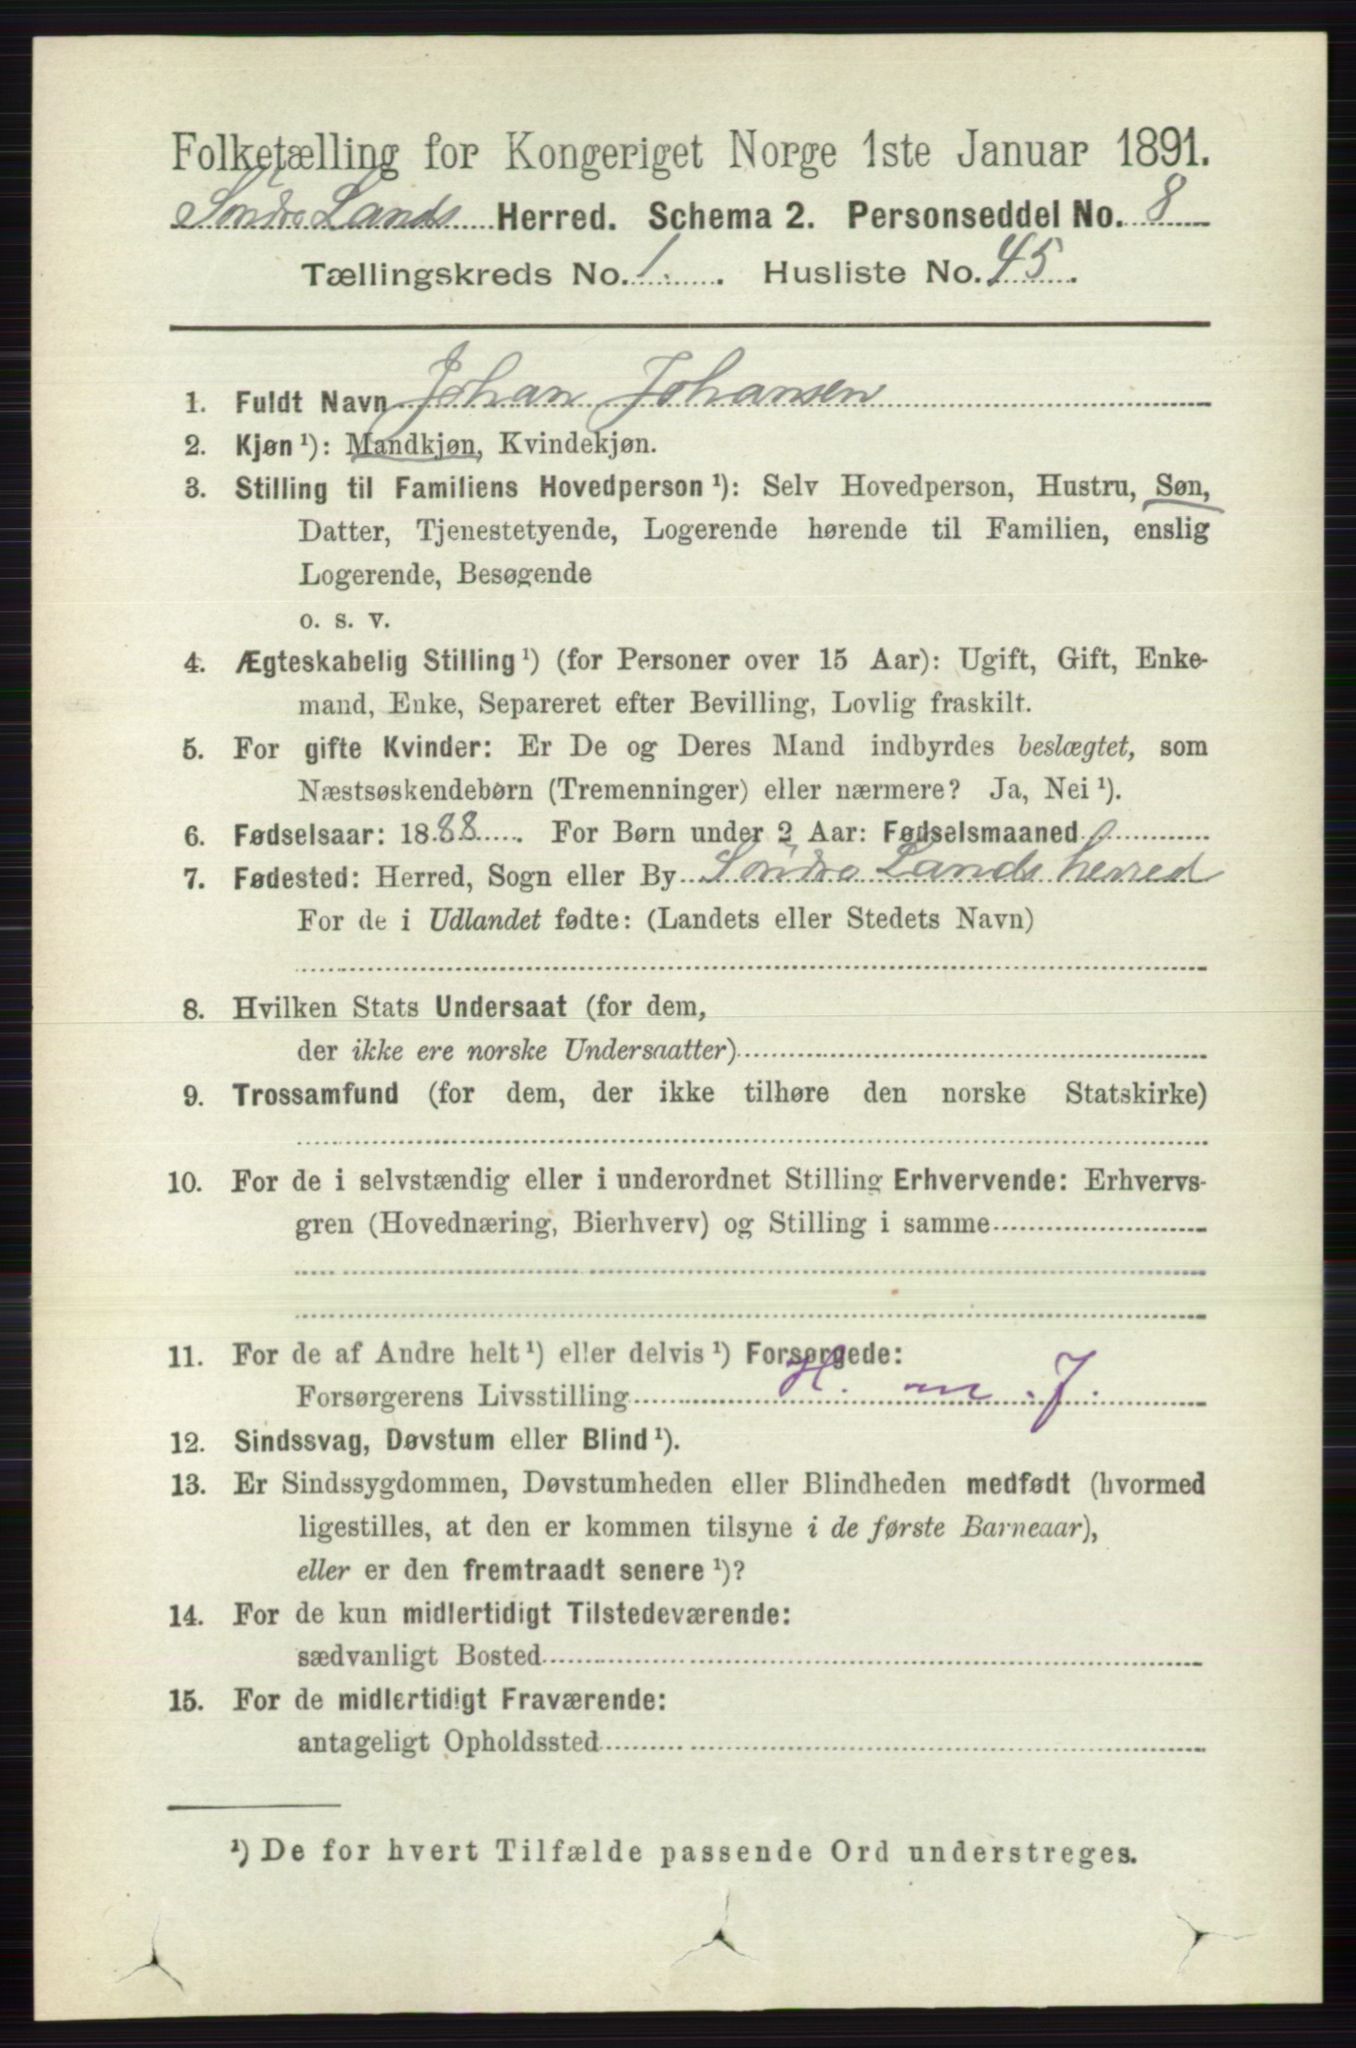 Folketælling for Kongeriget Norge 1ste Januar 1891.
Søndre Lands Herred. Schema 2. Personseddel No. 8
Tællingskreds No. 1. Husliste No. 45.
1. Fuldt Navn Johan Johansen
2. Kjøn¹): Mandkjøn, Kvindekjøn.
3. Stilling til Familiens Hovedperson¹): Selv Hovedperson, Hustru, Søn,
Datter, Tjenestetyende, Logerende hørende til Familien, enslig
Logerende, Besøgende
o. s. v.
4. Ægteskabelig Stilling¹) (for Personer over 15 Aar): Ugift, Gift, Enke-
mand, Enke, Separeret efter Bevilling, Lovlig fraskilt.
5. For gifte Kvinder: Er De og Deres Mand indbyrdes beslægtet, som
Næstsøskendebørn (Tremenninger) eller nærmere? Ja, Nei¹).
6. Fødselsaar: 1888. For Børn under 2 Aar: Fødselsmaaned
7. Fødested: Herred, Sogn eller By Søndre Lands herred
For de i Udlandet fødte: (Landets eller Stedets Navn)
8. Hvilken Stats Undersaat (for dem,
der ikke ere norske Undersaatter)
9. Trossamfund (for dem, der ikke tilhøre den norske Statskirke)
10. For de i selvstændig eller i underordnet Stilling Erhvervende: Erhvervs-
gren (Hovednæring, Bierhverv) og Stilling i samme
11. For de af Andre helt¹) eller delvis¹) Forsørgede:
Forsørgerens Livsstilling H. m. J.
12. Sindssvag, Døvstum eller Blind¹).
13. Er Sindssygdommen, Døvstumheden eller Blindheden medfødt (hvormed
ligestilles, at den er kommen tilsyne i de første Barneaar),
eller er den fremtraadt senere¹)?
14. For de kun midlertidigt Tilstedeværende:
sædvanligt Bosted
15. For de midlertidigt Fraværende:
antageligt Opholdssted
¹) De for hvert Tilfælde passende Ord understreges.